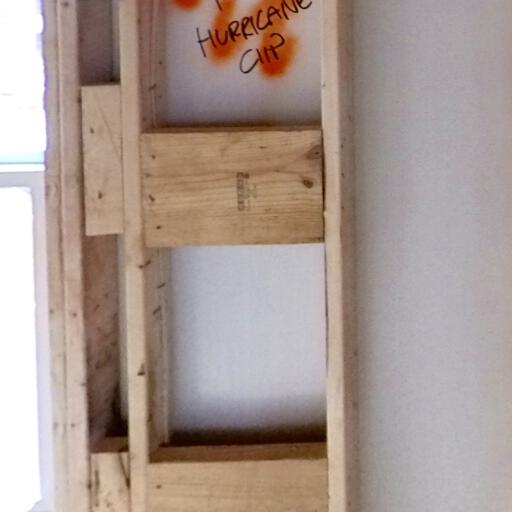 HURRICANE
CLIP